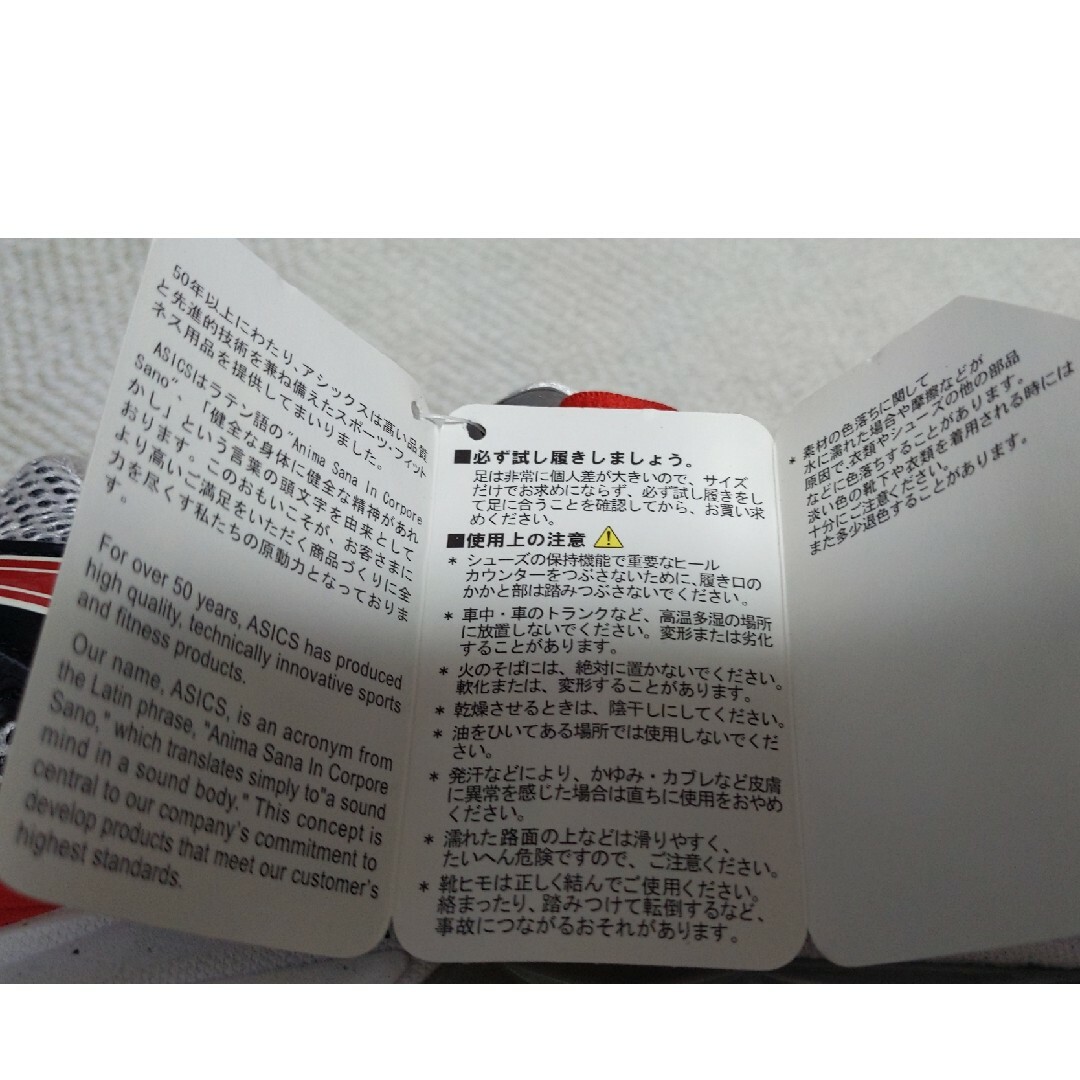 50年以上にわたり、アシックスは高い品質
と先進的技術を兼ね備えたスポーツ・フィット
ネス用品を提供してまいりました。
ASICSはラテン語の"Anima Sana In Corpore
Sano"、「健全な身体に健全な精神があれ
かし」という言葉の頭文字を由来として
おります。このおもいこそが、お客さまに
より高いご満足をいただく商品づくりに全
力を尽くす私たちの原動力となっておりま
す。
For over 50 years, ASICS has produced
high quality, technically innovative sports
and fitness products.
Our name, ASICS, is an acronym from
the Latin phrase, "Anima Sana In Corpore
Sano," which translates simply to"a sound
mind in a sound body." This concept is
central to our company's commitment to
develop products that meet our customer's
highest standards.
■必ず試し履きしましょう。
足は非常に個人差が大きいので、サイズ
だけでお求めにならず、必ず試し履きをし
て足に合うことを確認してから、お買い求
めください。
■使用上の注意
* シューズの保持機能で重要なヒール
カウンターをつぶさないために、履き口の
かかと部は踏みつぶさないでください。
* 車中・車のトランクなど、高温多湿の場所
に放置しないでください。変形または劣化
することがあります。
* 火のそばには、絶対に置かないでください。
軟化または、変形することがあります。
* 乾燥させるときは、陰干しにしてください。
* 油をひいてある場所では使用しないでくだ
さい。
* 発汗などにより、かゆみ・カブレなど皮膚
に異常を感じた場合は直ちに使用をおやめ
ください。
* 濡れた路面の上などは滑りやすく、
たいへん危険ですので、ご注意ください。
* 靴ヒモは正しく結んでご使用ください。
絡まったり、踏みつけて転倒するなど、
事故につながるおそれがあります。
* 素材の色落ちに関して
水に濡れた場合や摩擦などが
原因で、衣類やシューズの他の部品
などに色落ちすることがあります。
淡い色の靴下や衣類を着用される時には
十分にご注意ください。
また多少退色することがあります。